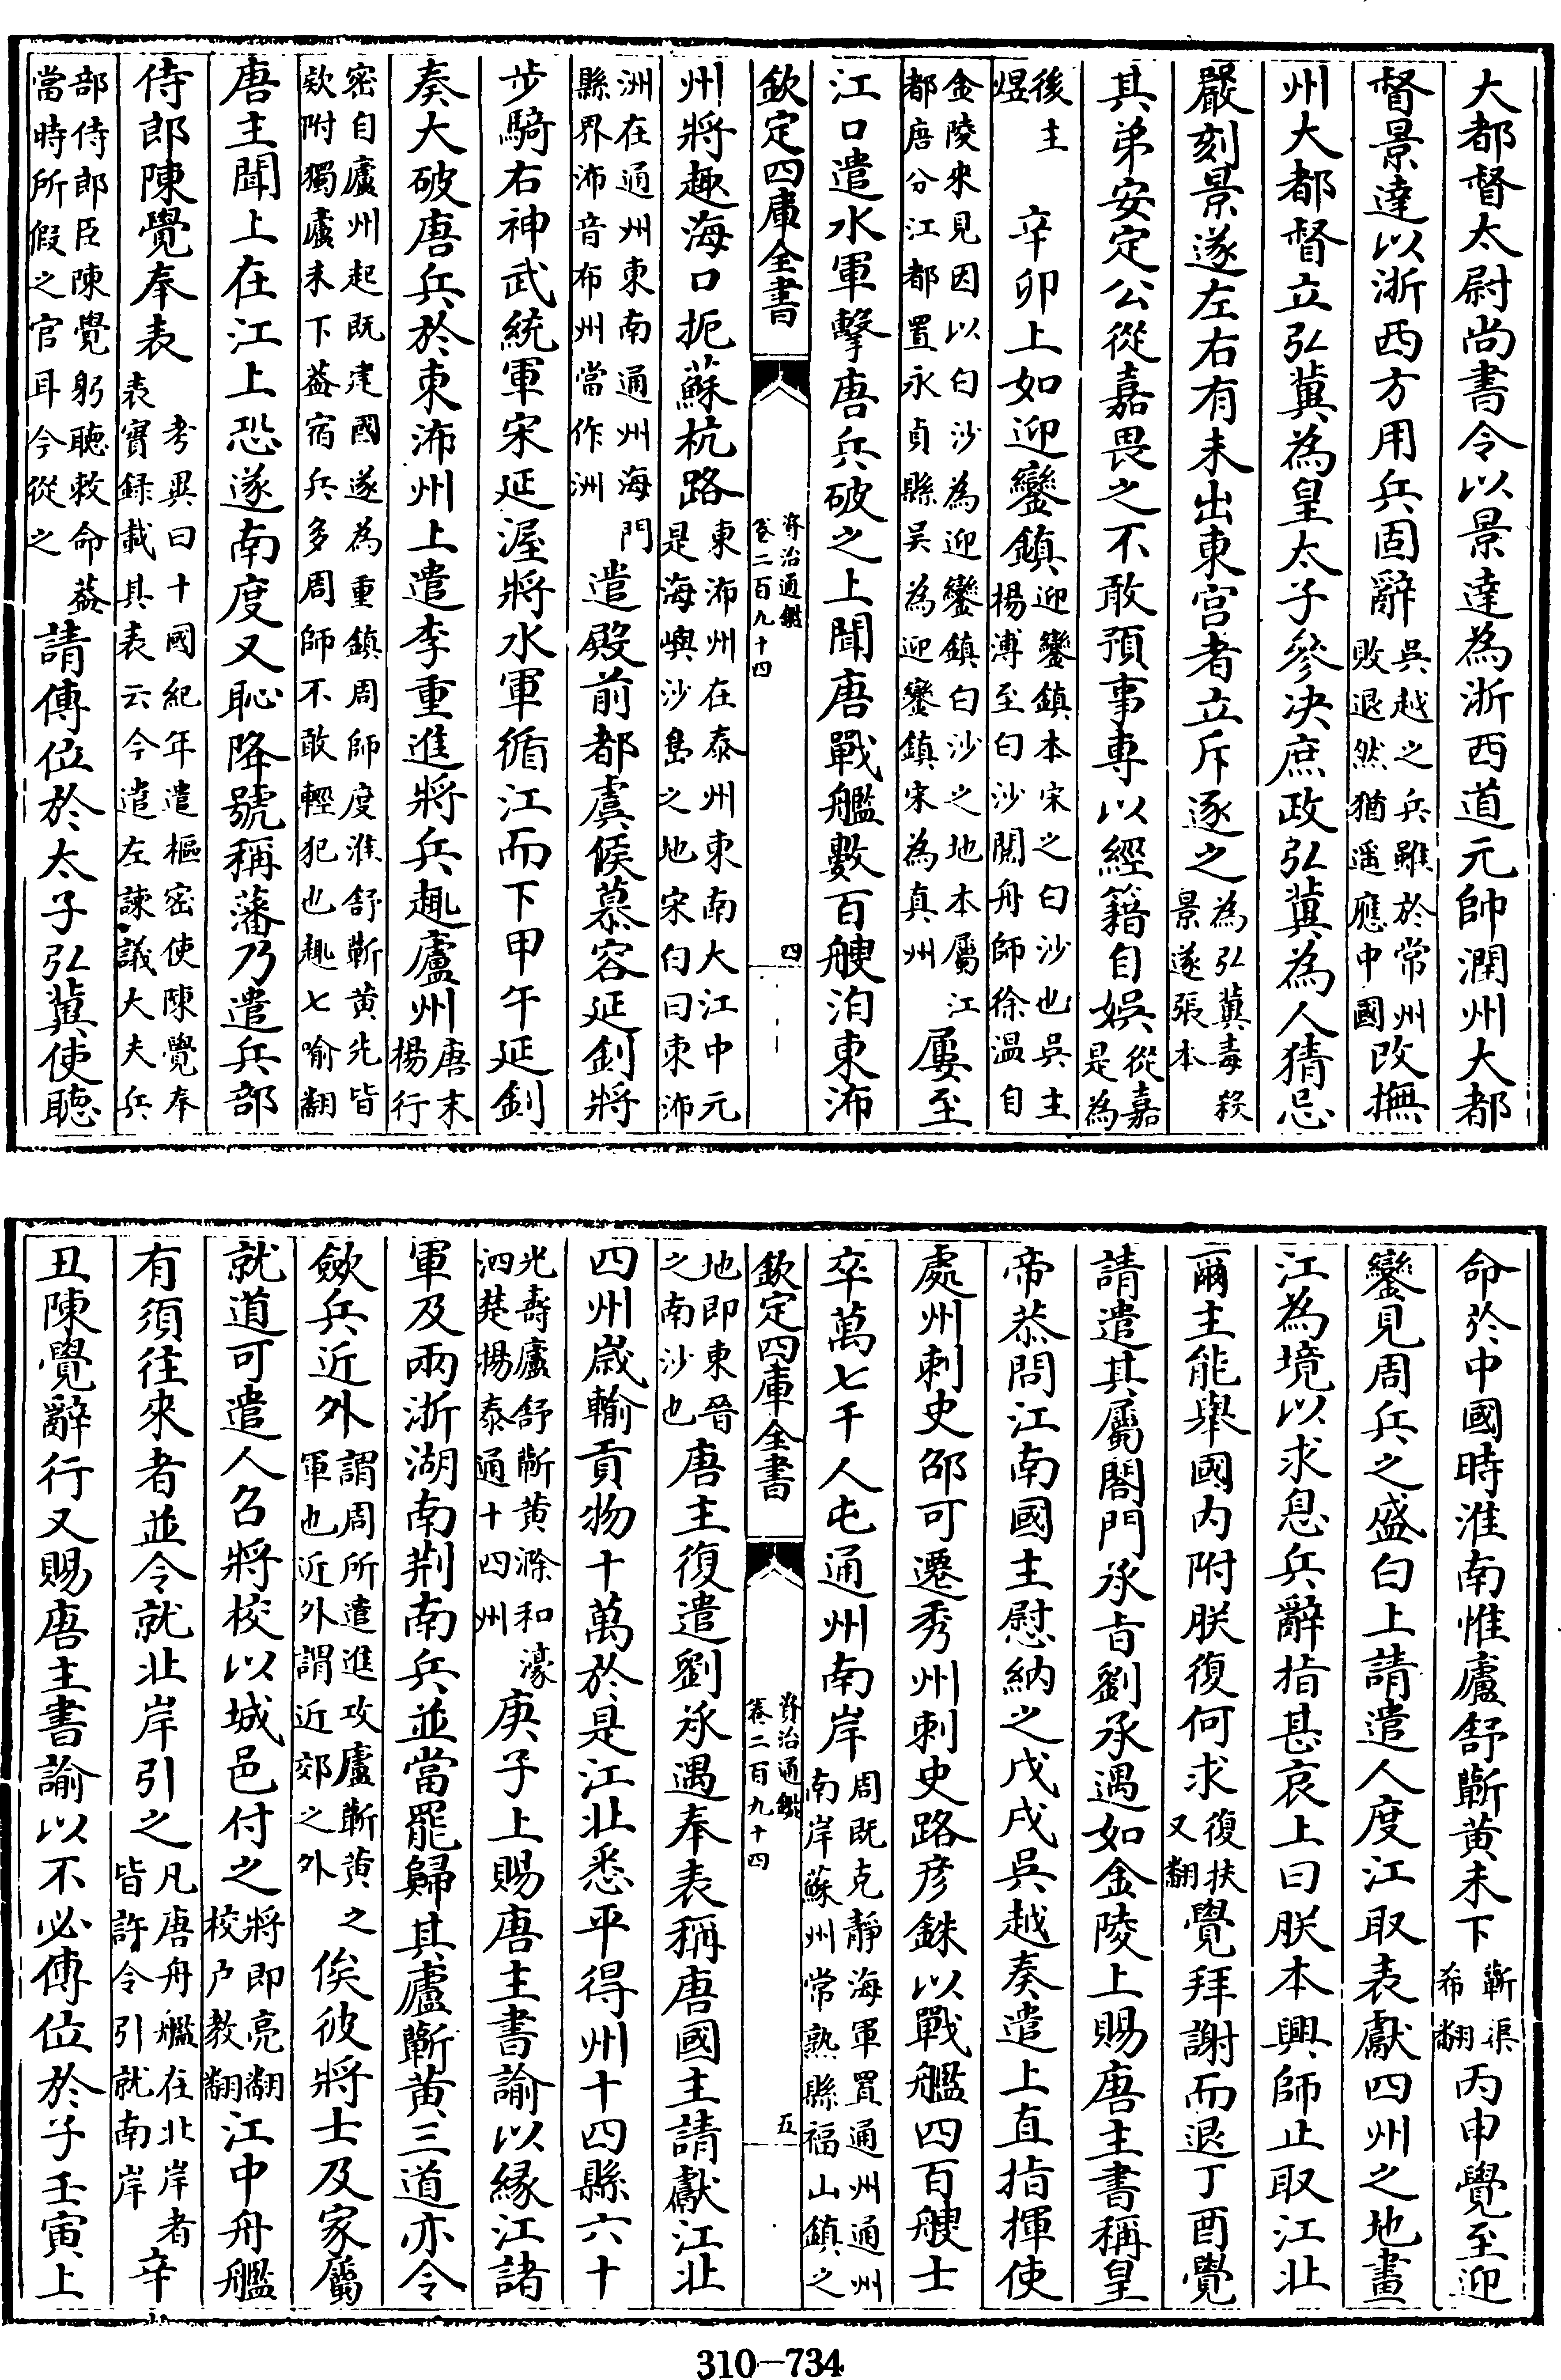 大都督太尉尚書令以景達為浙西道元帥潤州大都
督景達以浙西方用兵固辭吳越之兵雖於常州敗退然猶遥應中國改撫
州大都督立弘冀為皇太子參决庶政弘冀為人猜忌
嚴刻景遂左右有未出東宫者立斥逐之為弘冀毒殺景遂張本
其弟安定公從嘉畏之不敢預事專以經籍自娯從嘉是為
後主煜　辛卯上如迎鑾鎮迎鑾鎮本宋之白沙也吳主楊溥至白沙閲舟師徐温自
金陵來見因以白沙為迎鑾鎮白沙之地本屬江都唐分江都置永貞縣吴為迎鑾鎮宋為真州屢至
江口遣水軍擊唐兵破之上聞唐戰艦數百艘泊東㳍
欽定四庫全書
資治通鑑
卷二百九十四
四
州將趣海口扼蘇杭路東㳍州在泰州東南大江中元是海嶼沙島之地宋白曰東㳍
洲在通州東南通州海門縣界㳍音布州當作洲遣殿前都虞候慕容延釗將
步騎右神武統軍宋延渥將水軍循江而下甲午延釗
奏大破唐兵於東㳍州上遣李重進將兵趣廬州唐末楊行
密自廬州起既建國遂為重鎮周師度淮舒蘄黄先皆欵附獨廬未下葢宿兵多周師不敢輕犯也趣七喻翻
唐主聞上在江上恐遂南度又恥降號稱藩乃遣兵部
侍郎陳覺奉表考異曰十國紀年遣樞密使陳覺奉表實録載其表云今遣左諫議大夫兵
部侍郎臣陳覺躬聽救命葢當時所假之官耳今從之請傳位於太子弘冀使聽
命於中國時淮南惟廬舒蘄黄未下蘄渠希翻丙申覺至迎
鑾見周兵之盛白上請遣人度江取表獻四州之地畫
江為境以求息兵辭指甚哀上曰朕本興師止取江北
爾主能舉國内附朕復何求復扶又翻覺拜謝而退丁酉覺
請遣其屬閤門承旨劉承遇如金陵上賜唐主書稱皇
帝恭問江南國主慰納之戊戌吳越奏遣上直指揮使
處州刺史邵可遷秀州刺史路彦銖以戰艦四百艘士
卒萬七千人屯通州南岸周既克靜海軍置通州通州南岸蘇州常熟縣福山鎮之
欽定四庫全書
資治通鑑
卷二百九十四
五
地即東晉之南沙也唐主復遣劉承遇奉表稱唐國主請獻江北
四州嵗輸貢物十萬於是江北悉平得州十四縣六十
光壽廬舒蘄黄滁和濠泗楚揚泰通十四州庚子上賜唐主書諭以縁江諸
軍及兩浙湖南荆南兵並當罷歸其廬蘄黄三道亦令
歛兵近外謂周所遣進攻廬蘄黄之軍也近外謂近郊之外俟彼將士及家屬
就道可遣人召將校以城邑付之將即亮翻校户教翻江中舟艦
有須往來者並令就北岸引之凡唐舟艦在北岸者皆許令引就南岸辛
丑陳覺辭行又賜唐主書諭以不必傳位於子壬寅上
310—734